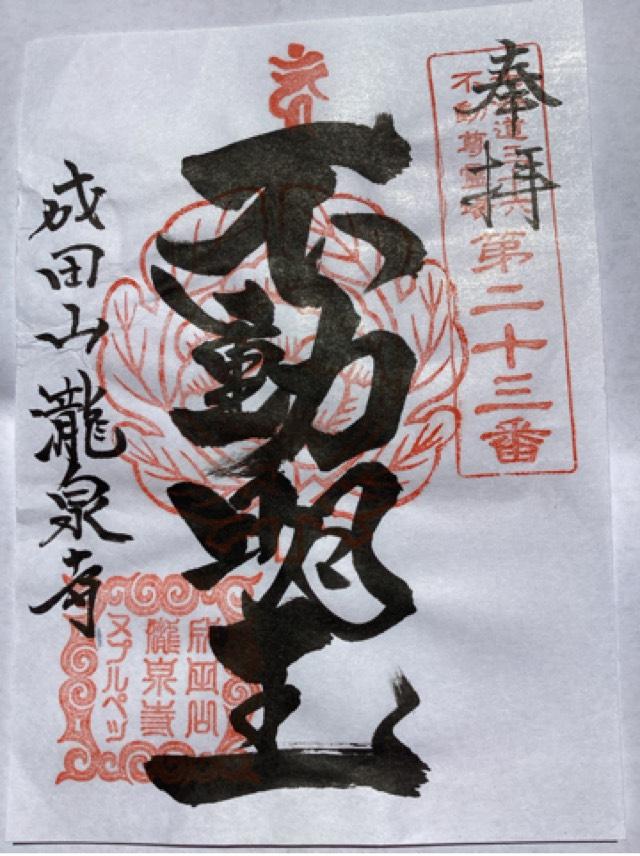 奉拝
北海道三十六
不動尊霊場
第二十三番
不動明王
成田山 瀧泉寺
成田山
瀧泉寺
ヌプルペッ